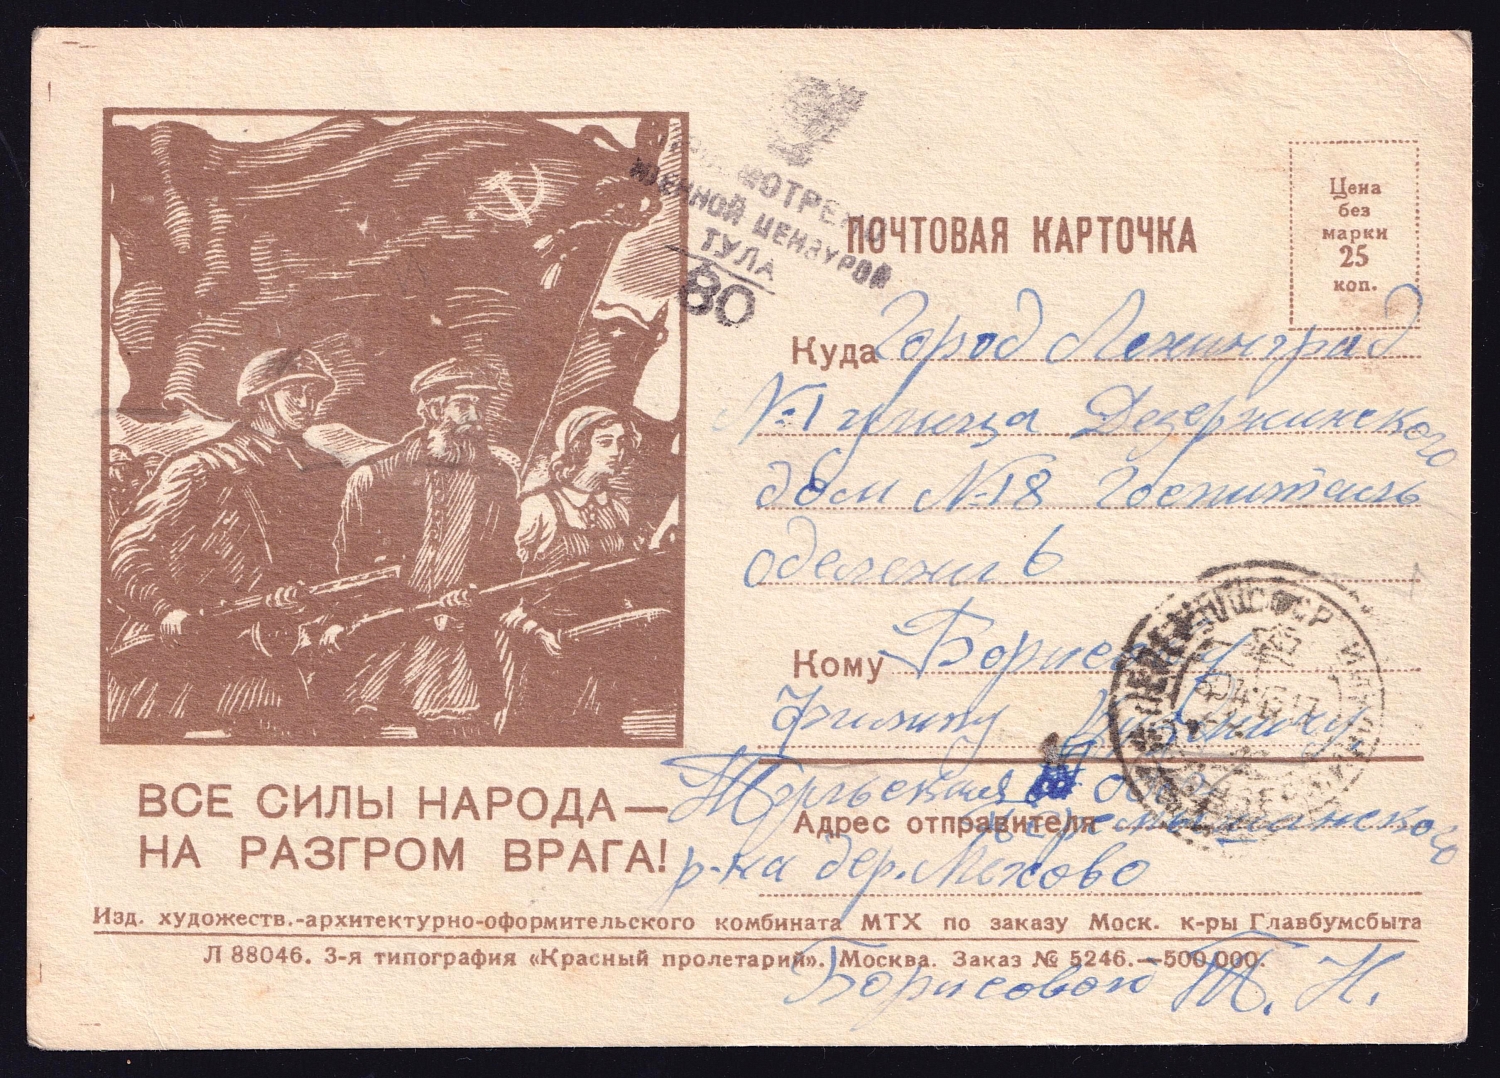 ПРОСМОТРЕНО
ВОЕННОЙ ЦЕНЗУРОЙ
ТУЛА
80
ПОЧТОВАЯ КАРТОЧКА
Цена
без
марки
25
коп.
Куда Город Ленинград
№1 улица Дзержинского
дом №18 Госпиталь
оделени 6
Кому Борисову
Филипу
ВСЕ СИЛЫ НАРОДА—
НА РАЗГРОМ ВРАГА!
Адрес отправителя
р-на дер. Мехово
Изд. художеств.-архитектурно-оформительского комбината МТХ по заказу Моск. к-ры Главбумсбыта
Л 88046. 3-я типография «Красный пролетарий». Москва. Заказ № 5246.—500.000.
Борисовой Т. Н.